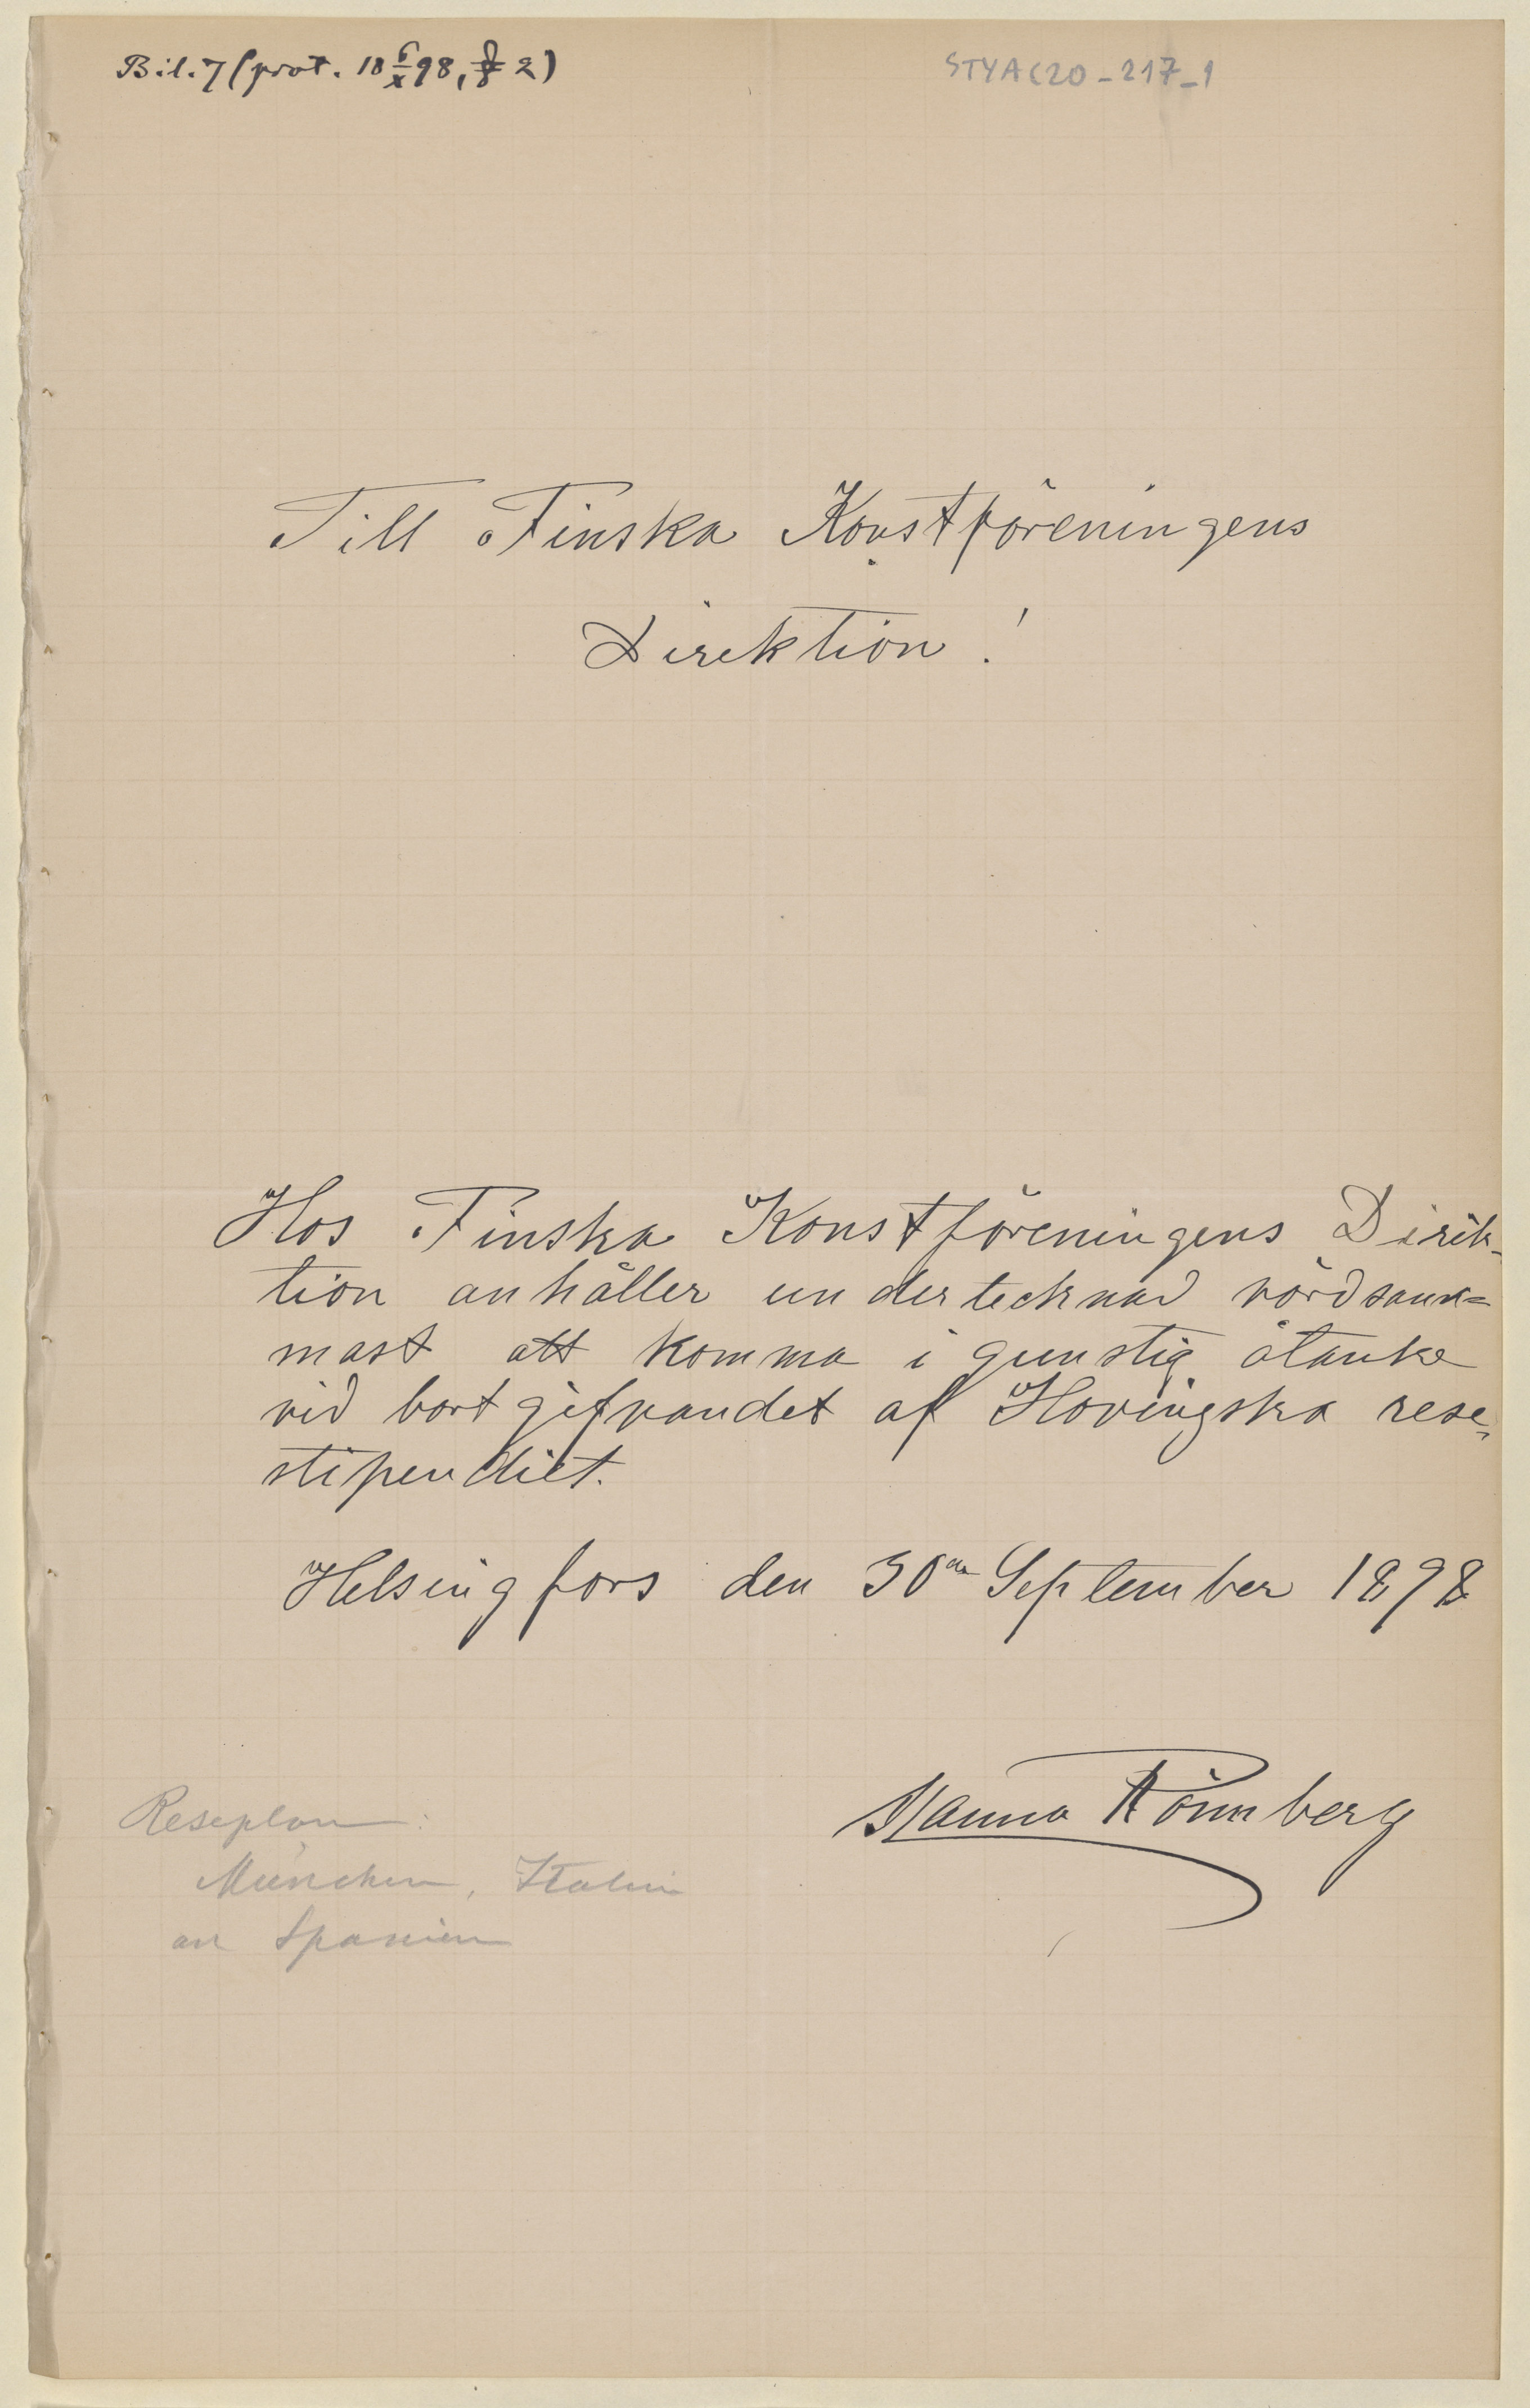 Bil. 7 (prot. 18 6/X 98, § 2)
STYAC20-217-1
Till Finska Konstföreningens
Direktion!
Hos Finska Konstföreningens Direk-
tion anhåller undertecknad vördsam=
mast att komma i gunstig åtanke
vid bortgifvandet af Hovingska rese-
stipendiet.
Helsingfors den 30de September 1898
Hanna Rönnberg
Reseplan:
München, Italien
och Spanien